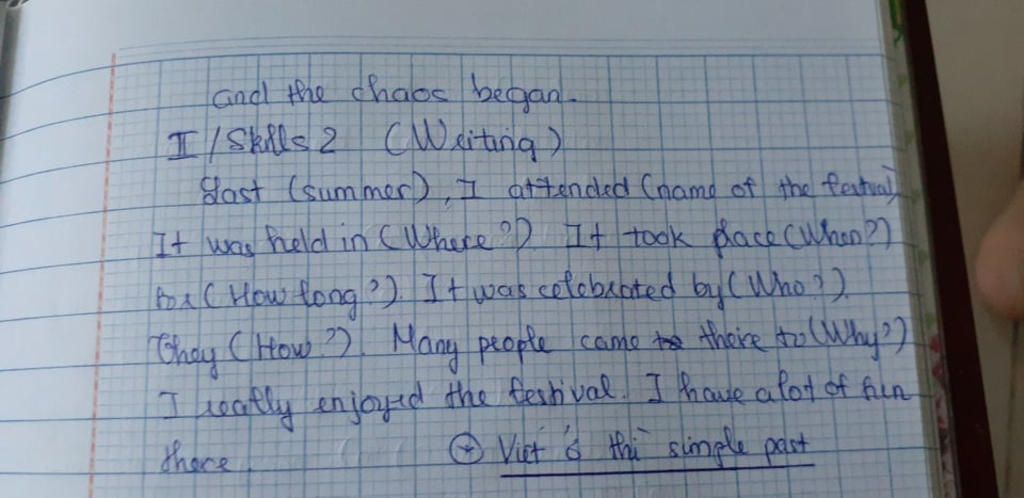 and the chaos began.
II/Skills 2 (Writing)
Last (summer), I attended (name of the festival)
It was held in (Where?). It took place (When?)
for (How long?). It was celebrated by (Who?).
They (How?). Many people came to there to (Why?)
I really enjoyed the festival. I have a lot of fun
there. + Viết ở thì simple past